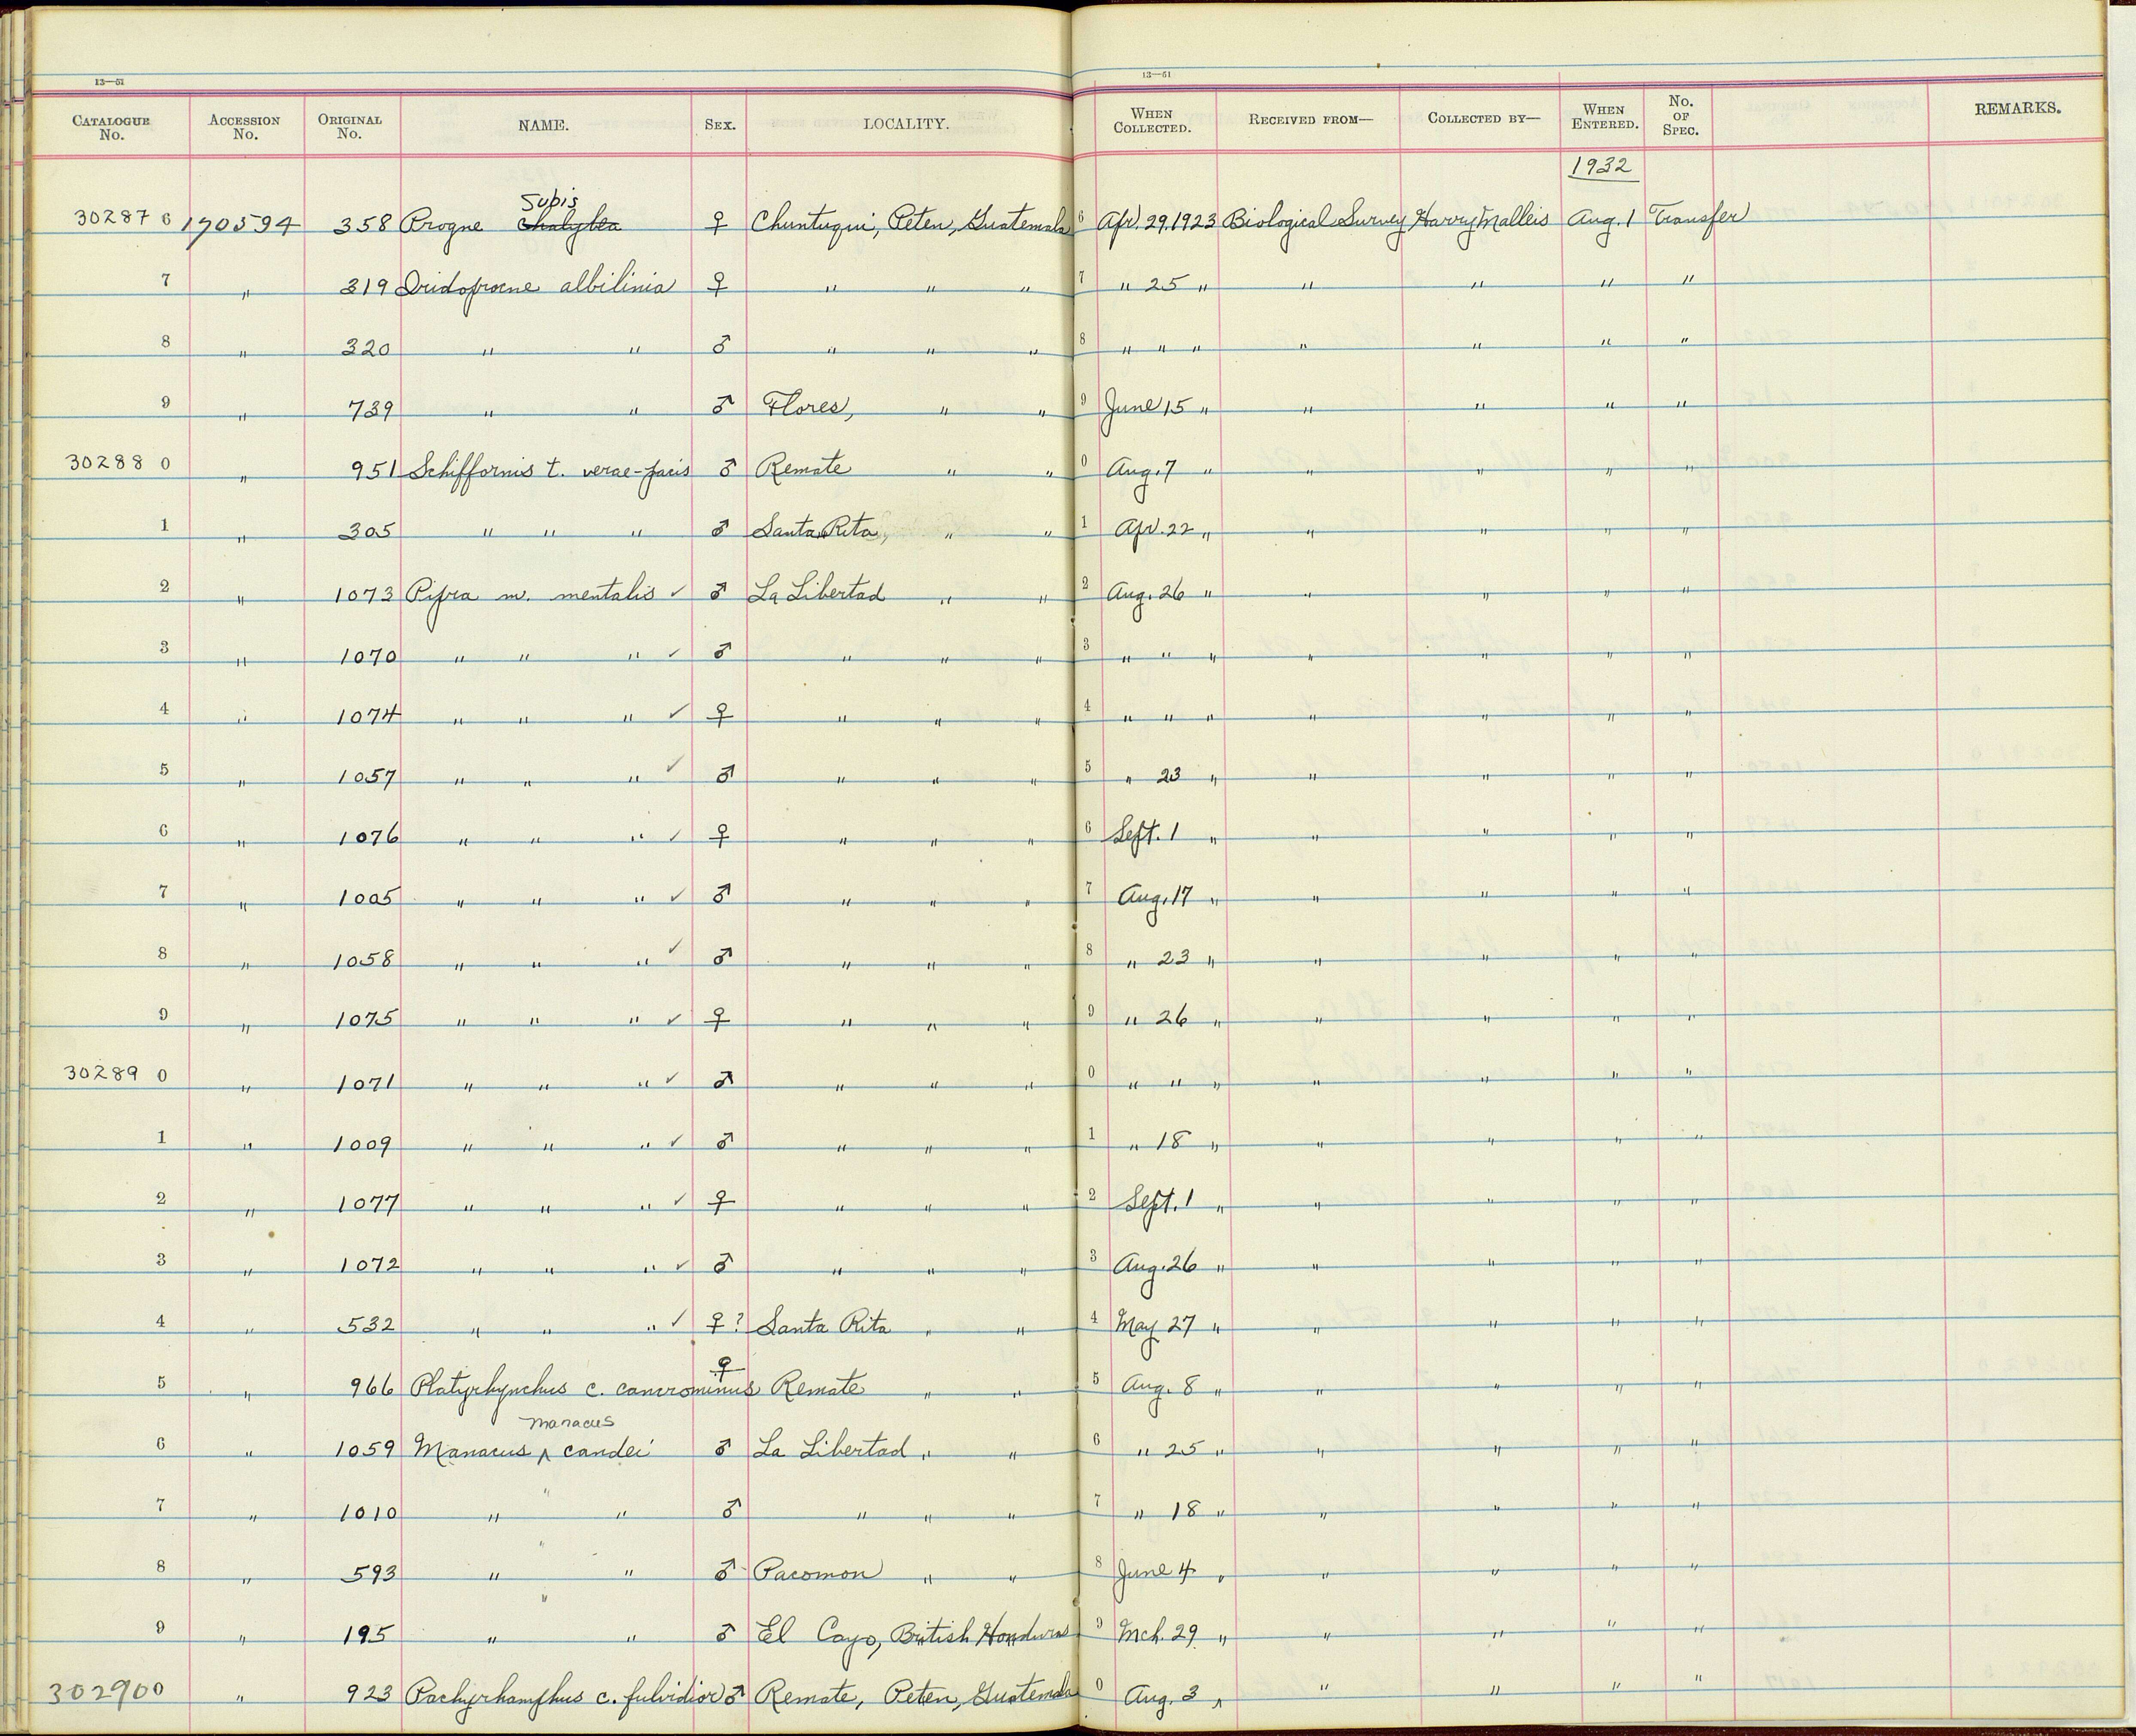 13—51 13—51
CATALOGUE No. ACCESSION No. ORIGINAL No. NAME. SEX. LOCALITY. WHEN COLLECTED. RECEIVED FROM— COLLECTED BY— WHEN ENTERED. No. OF SPEC. REMARKS.
1932
Subis
302876 170594 358 Progne chalybea ♀ Chuntuqui, Peten, Guatemala 6 Apr. 29, 1923 Biological Survey Harry Malleis Aug. 1 Transfer
7 " 319 Iridoprocne albilinia ♀ " " " 7 " 25 " " " " "
8 " 320 " " ♂ " " " 8 " " " " " " "
9 " 739 " " ♂ Flores, " " 9 June 15 " " " " "
302880 " 951 Schiffornis t. verae-pacis ♂ Remate " " 0 Aug. 7 " " " " "
1 " 305 " " " ♂ Santa Rita, " " 1 Apr. 22 " " " " "
2 " 1073 Pipra m. mentalis ✓ ♂ La Libertad " " 2 Aug. 26 " " " " "
3 " 1070 " " " ✓ ♂ " " " 3 " " " " " " "
4 " 1074 " " " ✓ ♀ " " " 4 " " " " " " "
5 " 1057 " " " ✓ ♂ " " " 5 " 23 " " " " "
6 " 1076 " " " ✓ ♀ " " " 6 Sept. 1 " " " " "
7 " 1005 " " " ✓ ♂ " " " 7 Aug. 17 " " " " "
8 " 1058 " " " ✓ ♂ " " " 8 " 23 " " " " "
9 " 1075 " " " ✓ ♀ " " " 9 " 26 " " " " "
302890 " 1071 " " " ✓ ♂ " " " 0 " " " " " " "
1 " 1009 " " " ✓ ♂ " " " 1 " 18 " " " " "
2 " 1077 " " " ✓ ♀ " " " 2 Sept. 1 " " " " "
3 " 1072 " " " ✓ ♂ " " " 3 Aug. 26 " " " " "
4 " 532 " " " ✓ ♀? Santa Rita " " 4 May 27 " " " " "
5 " 966 Platyrhynchus c. cancrominus ♀ Remate " " 5 Aug. 8 " " " " "
manacus
6 " 1059 Manacus ^ candei ♂ La Libertad " " 6 " 25 " " " " "
7 " 1010 " " " ♂ " " " 7 " 18 " " " " "
8 " 593 " " " ♂ Pacomon " " 8 June 4 " " " " "
9 " 195 " " " ♂ El Cayo, British Honduras 9 Mch. 29 " " " " "
302900 " 923 Pachyrhamphus c. fulvidior ♂ Remate, Peten, Guatemala 0 Aug. 3 " " " " "